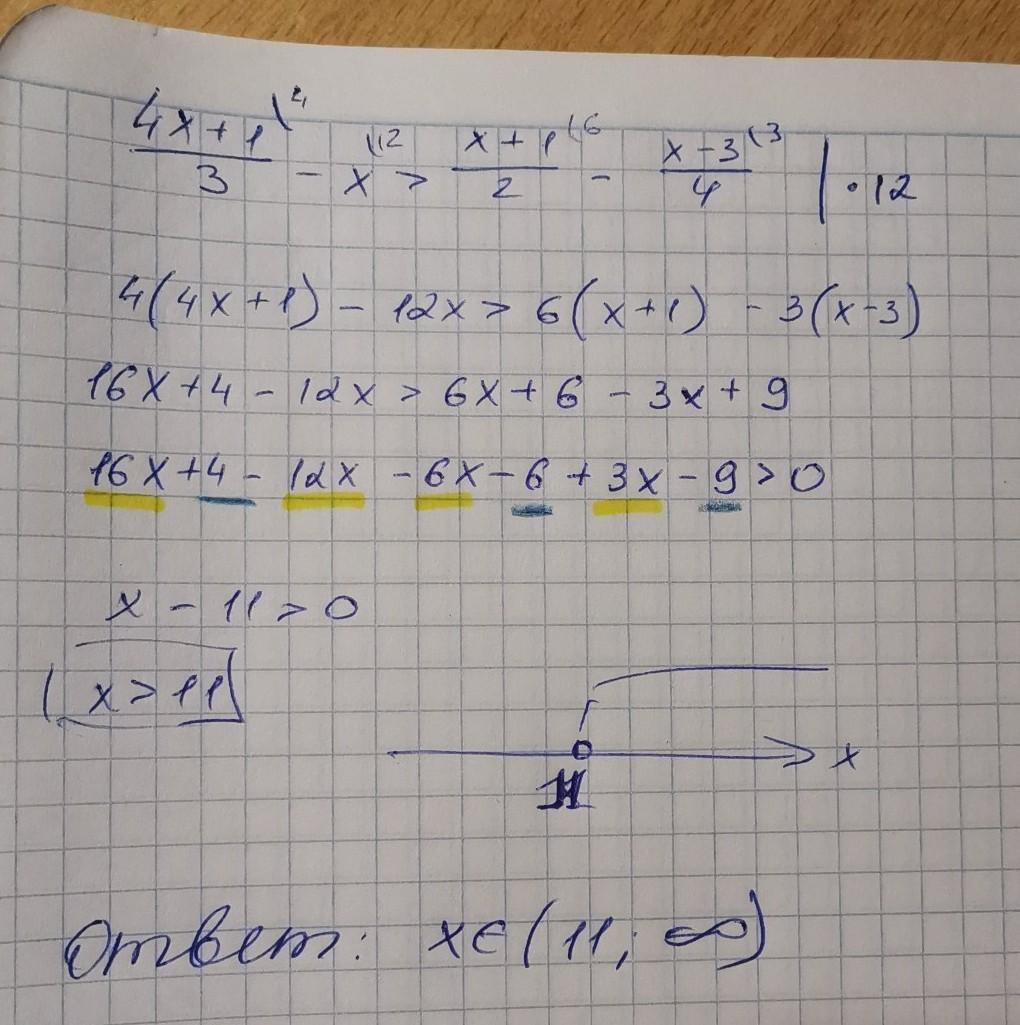 (4x+1)/3 \4 - x \12 > (x+1)/2 \6 - (x-3)/4 \3 | · 12
4(4x+1) - 12x > 6(x+1) - 3(x-3)
16x+4 - 12x > 6x+6 - 3x+9
16x+4 - 12x - 6x - 6 + 3x - 9 > 0
x - 11 > 0
x > 11
x
11
Ответ: x∈(11; ∞)